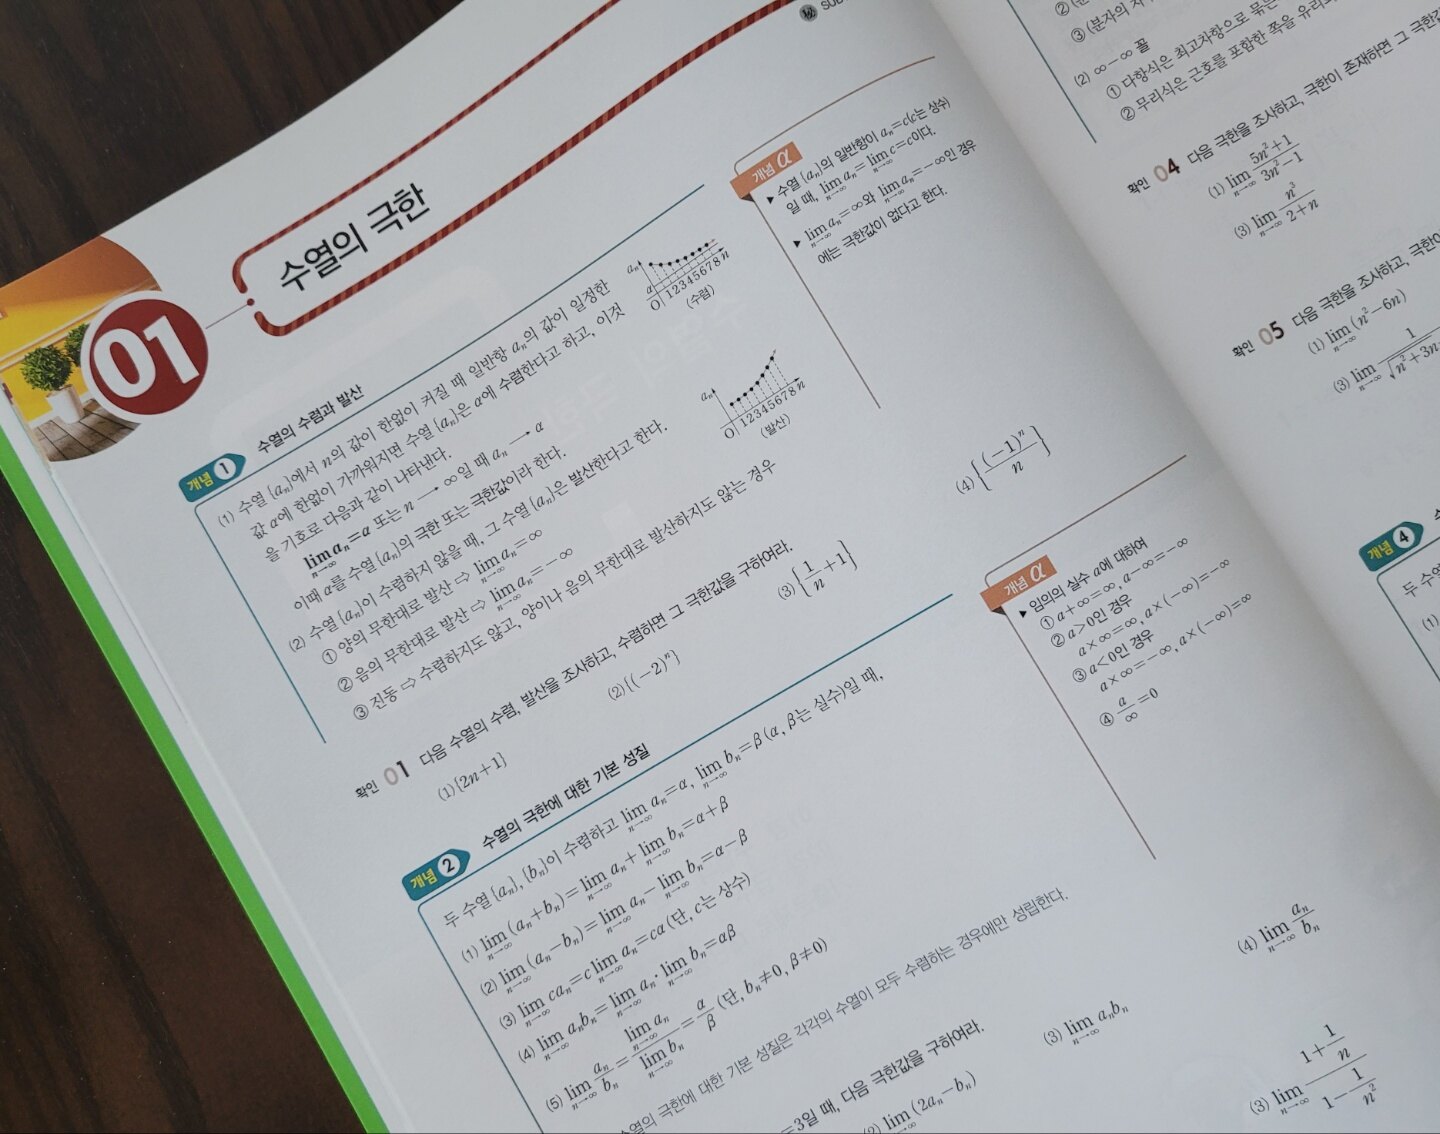 01
수열의 극한
개념 1 수열의 수렴과 발산
(1) 수열 {aₙ}에서 n의 값이 한없이 커질 때 일반항 aₙ의 값이 일정한
값 α에 한없이 가까워지면 수열 {aₙ}은 α에 수렴한다고 하고, 이것
을 기호로 다음과 같이 나타낸다.
lim_{n→∞} aₙ=α 또는 n → ∞일 때 aₙ → α
이때 α를 수열 {aₙ}의 극한 또는 극한값이라 한다.
(2) 수열 {aₙ}이 수렴하지 않을 때, 그 수열 {aₙ}은 발산한다고 한다.
① 양의 무한대로 발산 ⇨ lim_{n→∞} aₙ=∞
② 음의 무한대로 발산 ⇨ lim_{n→∞} aₙ=-∞
③ 진동 ⇨ 수렴하지도 않고, 양이나 음의 무한대로 발산하지도 않는 경우
aₙ
α
O 1 2 3 4 5 6 7 8 n
(수렴)
aₙ
O 1 2 3 4 5 6 7 8 n
(발산)
개념 α
▶ 수열 {aₙ}의 일반항이 aₙ=c(c는 상수)
일 때, lim_{n→∞} aₙ=lim_{n→∞} c=c이다.
▶ lim_{n→∞} aₙ=∞와 lim_{n→∞} aₙ=-∞인 경우
에는 극한값이 없다고 한다.
확인 01 다음 수열의 수렴, 발산을 조사하고, 수렴하면 그 극한값을 구하여라.
(1) {2n+1} (2) {(-2)ⁿ} (3) {1/n+1} (4) {(-1)ⁿ/n}
개념 2 수열의 극한에 대한 기본 성질
두 수열 {aₙ}, {bₙ}이 수렴하고 lim_{n→∞} aₙ=α, lim_{n→∞} bₙ=β (α, β는 실수)일 때,
(1) lim_{n→∞} (aₙ+bₙ)=lim_{n→∞} aₙ+lim_{n→∞} bₙ=α+β
(2) lim_{n→∞} (aₙ-bₙ)=lim_{n→∞} aₙ-lim_{n→∞} bₙ=α-β
(3) lim_{n→∞} caₙ=c lim_{n→∞} aₙ=cα (단, c는 상수)
(4) lim_{n→∞} aₙbₙ=lim_{n→∞} aₙ·lim_{n→∞} bₙ=αβ
(5) lim_{n→∞} aₙ/bₙ=lim_{n→∞} aₙ/lim_{n→∞} bₙ=α/β (단, bₙ≠0, β≠0)
극한에 대한 기본 성질은 각각의 수열이 모두 수렴하는 경우에만 성립한다.
개념 α
▶ 임의의 실수 a에 대하여
① a+∞=∞, a-∞=-∞
② a>0인 경우
a×∞=∞, a×(-∞)=-∞
③ a<0인 경우
a×∞=-∞, a×(-∞)=∞
④ a/∞=0
=3일 때, 다음 극한값을 구하여라.
(2) lim_{n→∞} (2aₙ-bₙ) (3) lim_{n→∞} aₙbₙ (4) lim_{n→∞} aₙ/bₙ
(3) lim_{n→∞} (1+1/n)/(1-1/n²)
(2) ∞-∞ 꼴
① 다항식은 최고차항으로 묶는
② 무리식은 근호를 포함한 쪽을 유리
확인 04 다음 극한을 조사하고, 극한이 존재하면 그 극한값
(1) lim_{n→∞} (5n²+1)/(3n²-1)
(3) lim_{n→∞} n³/(2+n)
확인 05 다음 극한을 조사하고, 극한이
(1) lim_{n→∞} (n²-6n)
(3) lim_{n→∞} 1/√n²+3n
개념 4
두 수열
(1)